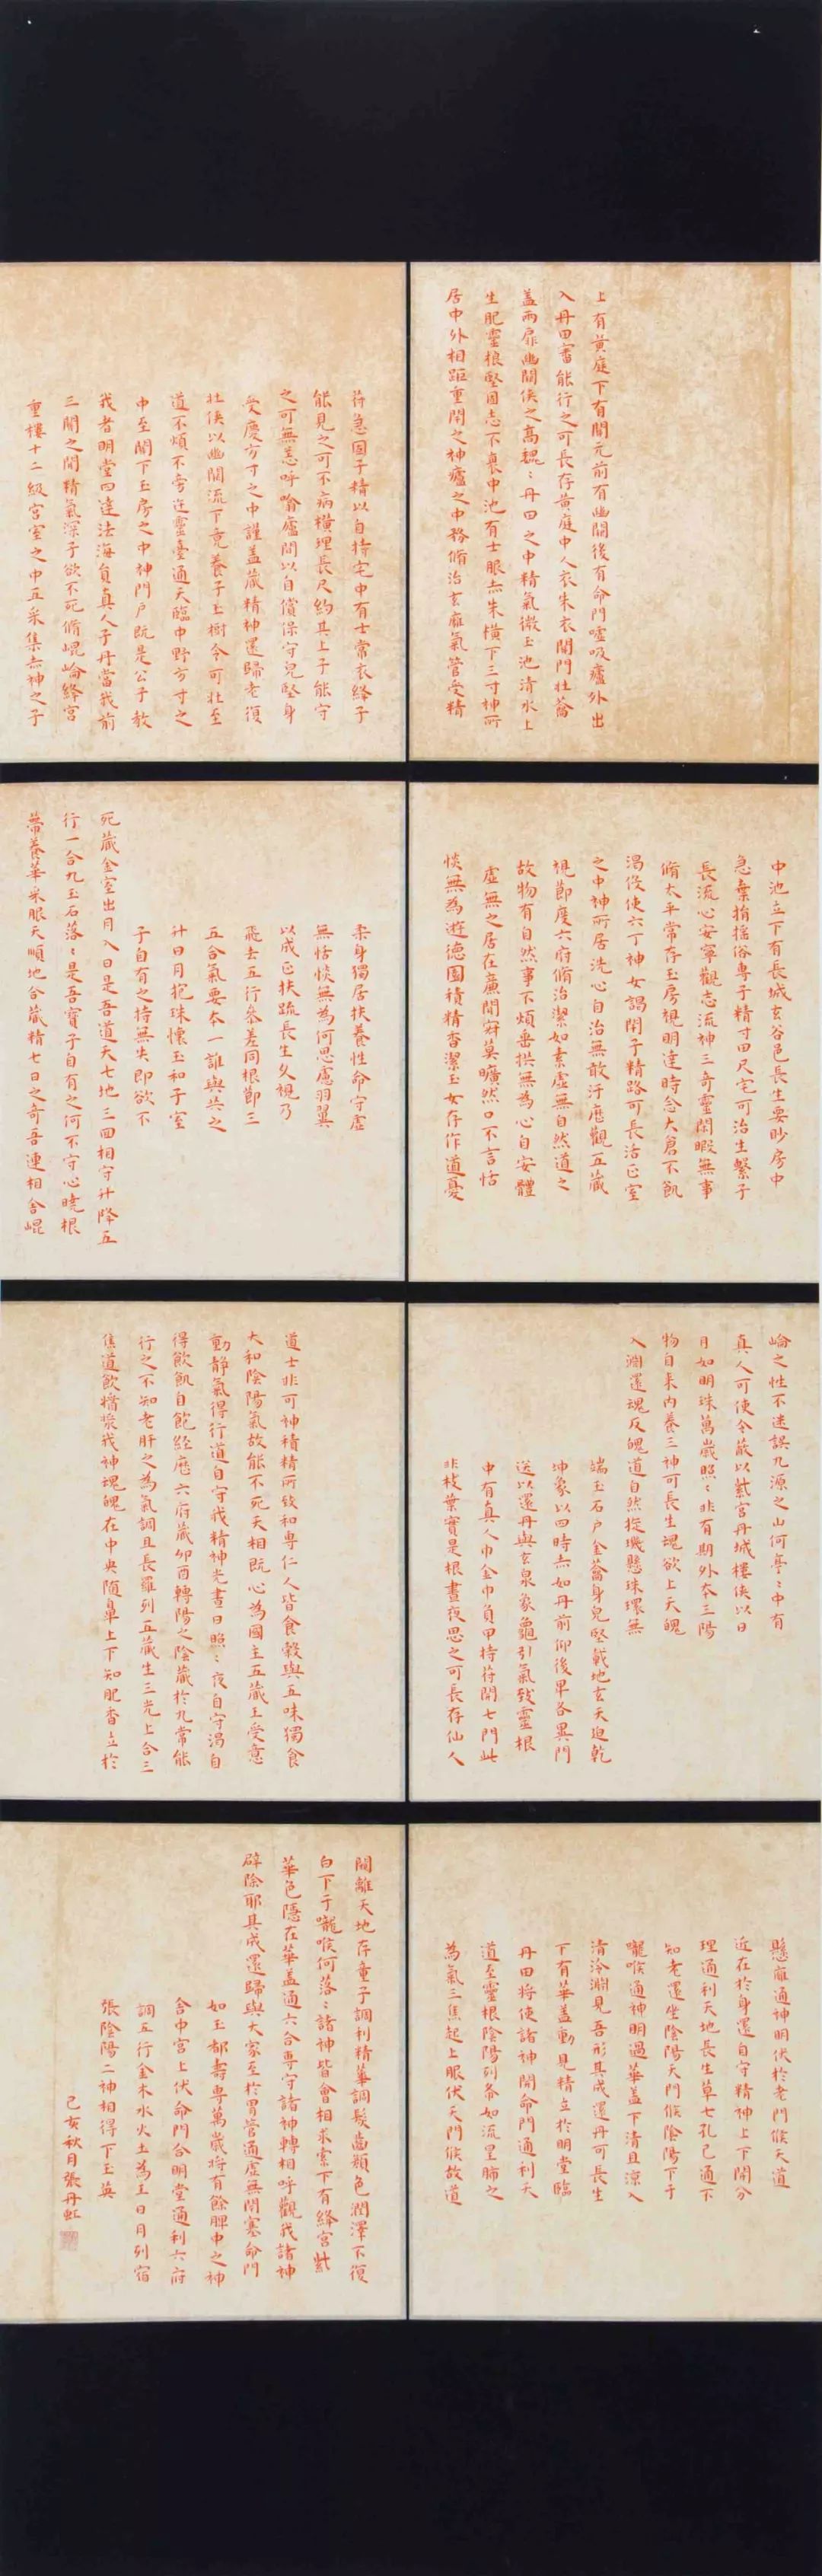 上有黃庭下有關元前有幽關後有命門噓吸廬外出
入丹田審能行之可長存黃庭中人衣朱衣關門壯蘥
蓋兩扉幽關俠之高魏〻丹田之中精氣微玉池清水上
生肥靈根堅固志不衰中池有士服赤朱橫下三寸神所
居中外相距重閉之神廬之中務脩治玄廱氣管受精
符急固子精以自持宅中有士常衣絳子
能見之可不病橫理長尺約其上子能守
之可無恙呼噏廬間以自償保守皃堅身
受慶方寸之中謹蓋藏精神還歸老復
壯俠以幽闕流下竟養子玉樹令可壯至
道不煩不旁迕靈臺通天臨中野方寸之
中至關下玉房之中神門戶既是公子教
我者明堂四達法海員真人子丹當我前
三關之間精氣深子欲不死脩崐崘絳宮
重樓十二級宮室之中五采集赤神之子
中池立下有長城玄谷邑長生要眇房中
急棄捐搖俗專子精寸田尺宅可治生繫子
長流心安寧觀志流神三奇靈閑暇無事
脩太平常存玉房視明達時念大倉不飢
渴役使六丁神女謁閉子精路可長活正室
之中神所居洗心自治無敢汙歷觀五藏
視節度六府脩治潔如素虛無自然道之
故物有自然事不煩垂拱無為心自安體
虛無之居在廉間寂莫曠然口不言恬
惔無為遊德園積精香潔玉女存作道憂
柔身獨居扶養性命守虛
無恬惔無為何思慮羽翼
以成正扶疏長生久視乃
飛去五行參差同根節三
五合氣要本一誰與共之
升日月抱珠懷玉和子室
子自有之持無失即欲不
死藏金室出月入日是吾道天七地三回相守升降五
行一合九玉石落〻是吾寶子自有之何不守心曉根
蔕養華采服天順地合藏精七日之奇吾連相舍崐
崘之性不迷誤九源之山何亭〻中有
真人可使令蔽以紫宮丹城樓俠以日
月如明珠萬歲照〻非有期外本三陽
物自来內養三神可長生魂欲上天魄
入淵還魂反魄道自然㨔璣懸珠環無
端玉石戶金蘥身皃堅戴地玄天迫乾
坤象以四時赤如丹前仰後卑各異門
送以還丹與玄泉象龜引氣致靈根
中有真人巾金巾負甲持符開七門此
非枝葉實是根晝夜思之可長存仙人
道士非可神積精所致和專仁人皆食穀與五味獨食
大和陰陽氣故能不死天相既心為國主五藏王受意
動靜氣得行道自守我精神光晝日照〻夜自守渴自
得飲飢自飽經歷六府藏卯酉轉陽之陰藏於九常能
行之不知老肝之為氣調且長羅列五藏生三光上合三
焦道飲醬漿我神魂魄在中央隨鼻上下知肥香立於
懸廱通神明伏於老門候天道
近在於身還自守精神上下開分
理通利天地長生草七孔已通不
知老還坐陰陽天門候陰陽下于
嚨喉通神明過華蓋下清且涼入
清泠淵見吾形其成還丹可長生
下有華蓋動見精立於明堂臨
丹田將使諸神開命門通利天
道至靈根陰陽列布如流星肺之
為氣三焦起上服伏天門候故道
闚離天地存童子調利精華調髮齒顏色潤澤不復
白下于嚨喉何落〻諸神皆會相求索下有絳宮紫
華色隱在華蓋通六合專守諸神轉相呼觀我諸神
辟除耶其成還歸與大家至於胃管通虛無閉塞命門
如玉都壽專萬歲将有餘脾中之神
舍中宮上伏命門合明堂通利六府
調五行金木水火土為王日月列宿
張陰陽二神相得下玉英
己亥秋月張丹虹